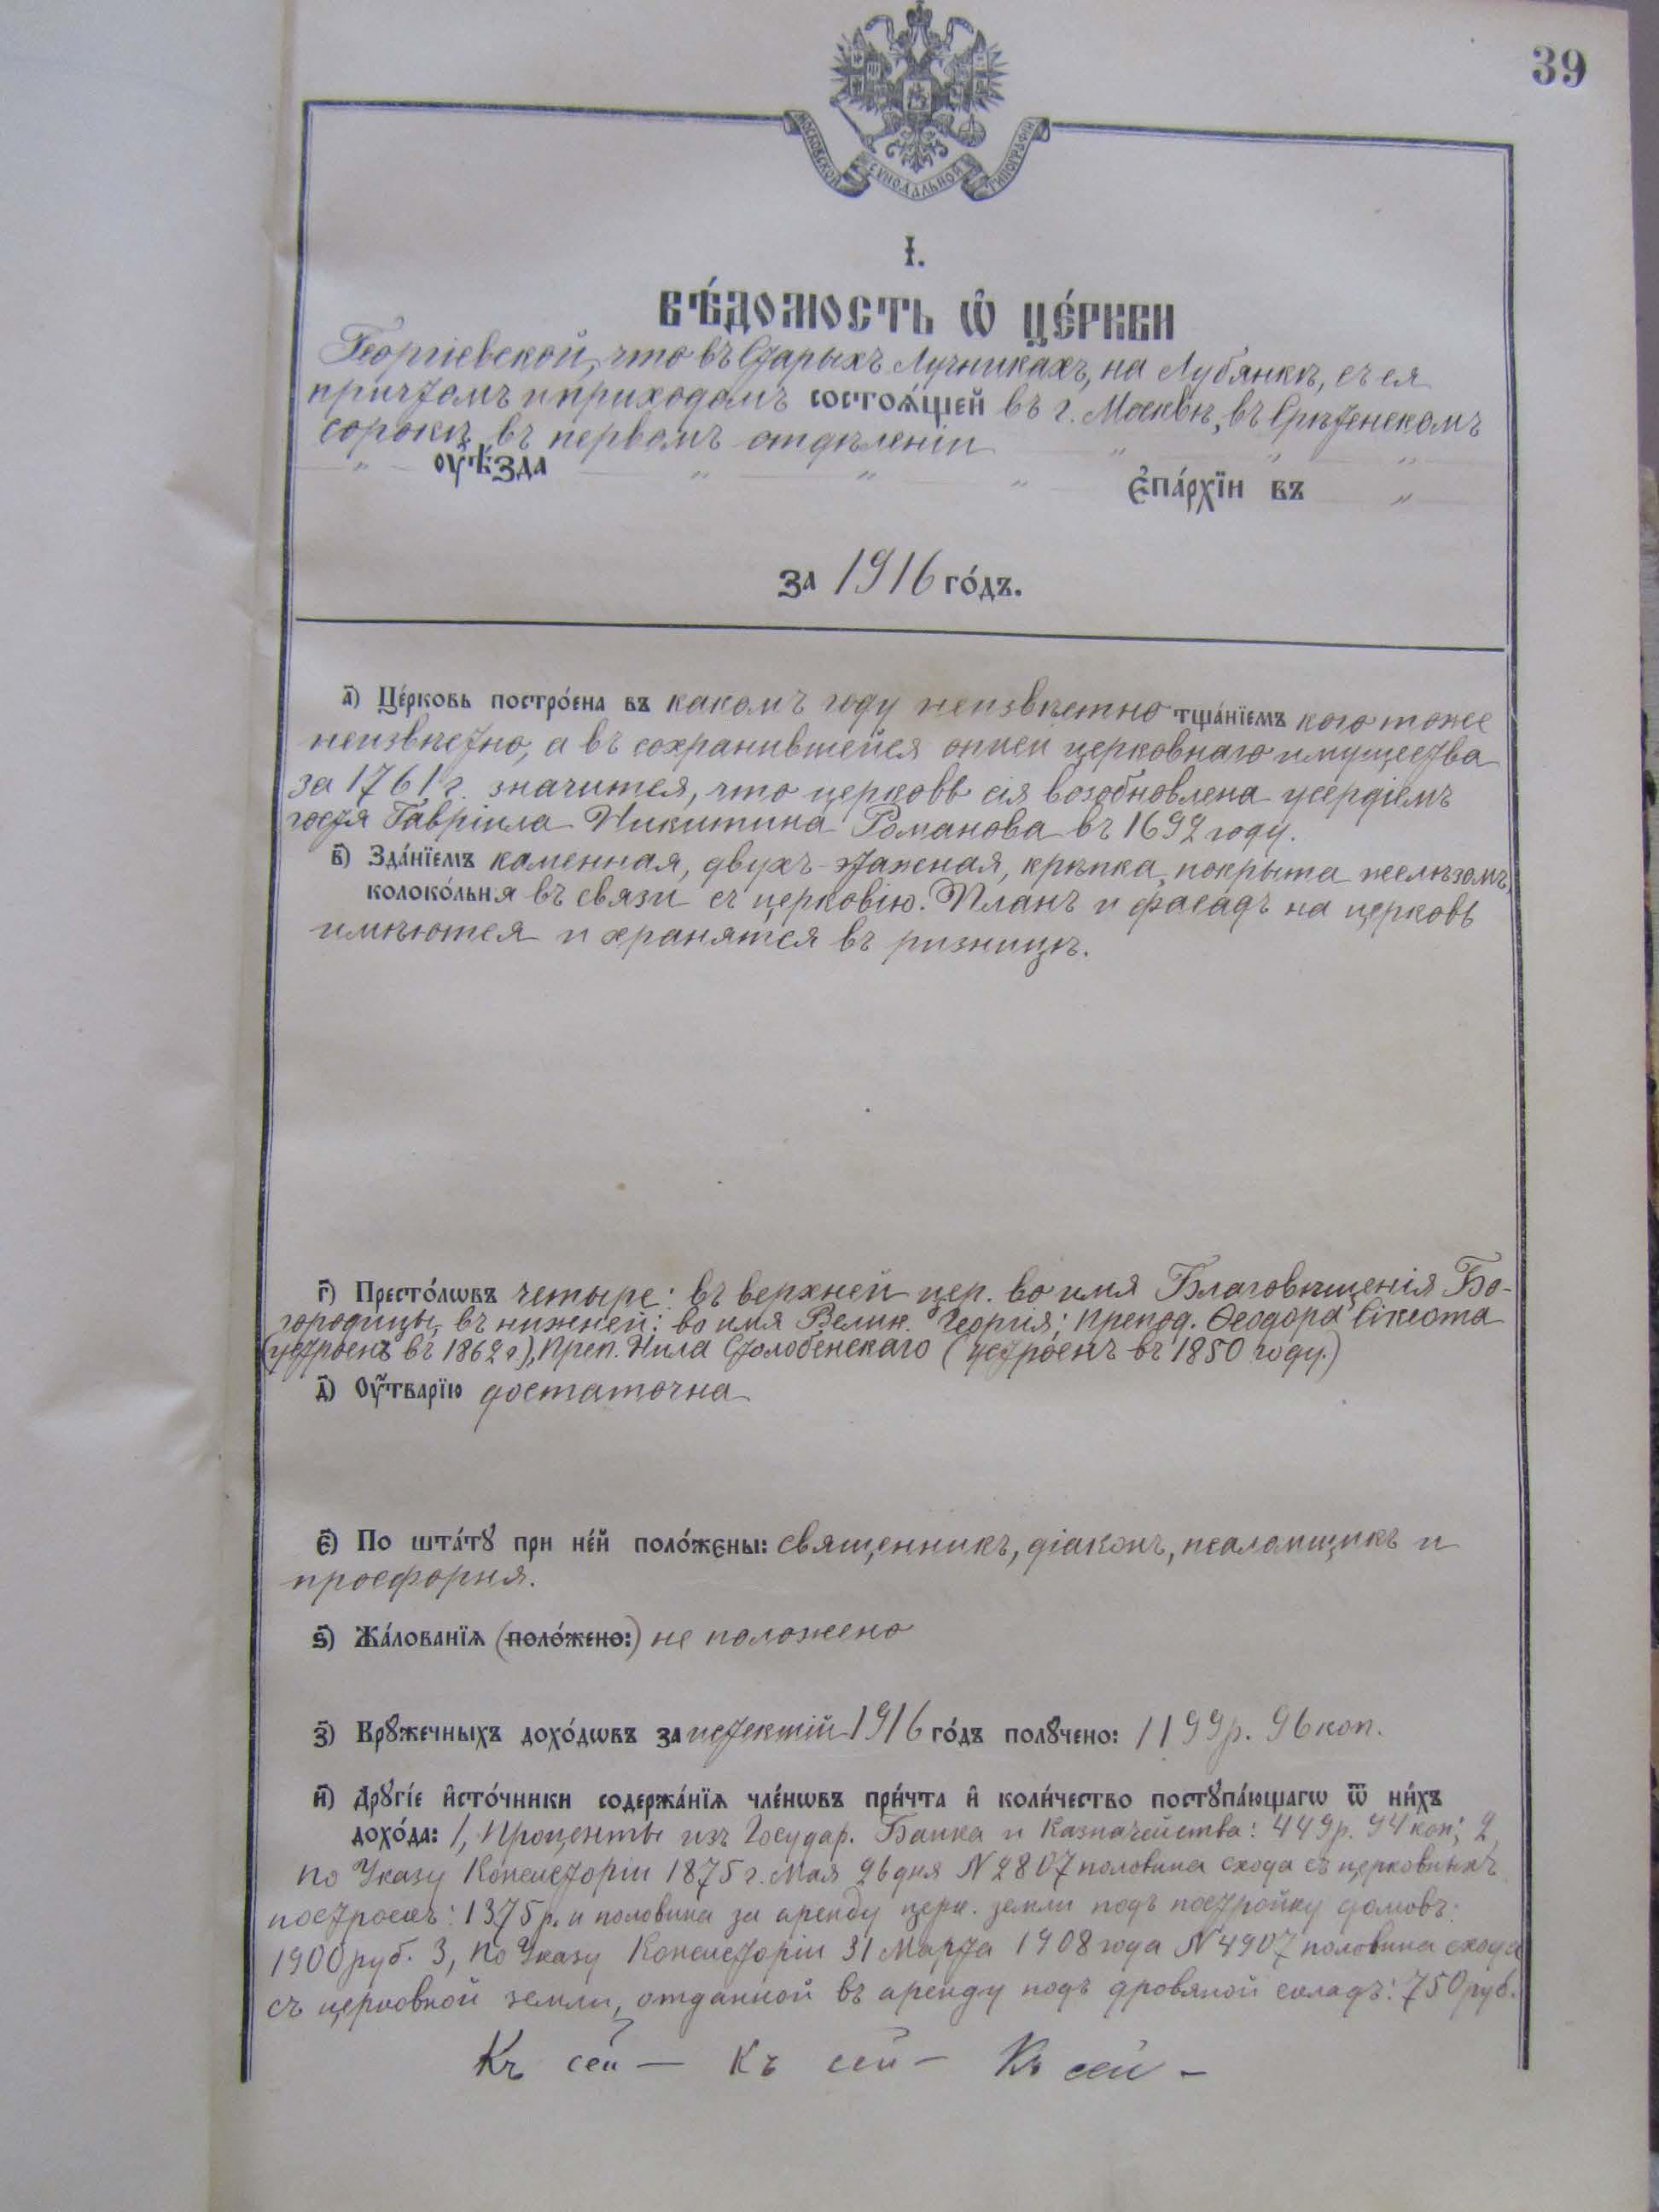 39
МОСКОВСКОЙ СѴНОДАЛЬНОЙ ТИПОГРАФІИ
І.
ВѢ́ДОМОСТЬ Ѡ҆ ЦЕ́РКВИ
Георгіевской, что въ Старыхъ Лучникахъ, на Лубянкѣ, съ ея
причтомъ и приходомъ состоѧ́щей въ г. Москвѣ, въ Срѣтенскомъ
сорокѣ въ первомъ отдѣленіи „ „ „
„ оу҆ѣ́зда „ „ „ є҆па́рхїи въ „
за 1916 го́дъ.
а҃) Це́рковь постро́ена въ какомъ году неизвѣстно тща́нїемъ кого тоже
неизвѣстно, а въ сохранившейся описи церковнаго имущества
за 1761 г. значится, что церковь сія возобновлена усердіемъ
гостя Гавріила Никитина Романова въ 1692 году.
в҃) Зда́нїемъ каменная, двухъ-этажная, крѣпка, покрыта желѣзомъ,
колоко́льня въ связи съ церковію. Планъ и фасадъ на церковь
имѣются и хранятся въ ризницѣ.
г҃) Престо́лѡвъ четыре: въ верхней цер. во имя Благовѣщенія Бо-
городицы, въ нижней: во имя Велик. Георгія; препод. Ѳеодора Сікеота
(устроенъ въ 1862 г), Преп. Нила Столобенскаго (устроенъ въ 1850 году.)
д҃) Оу҆́тварїю достаточна
є҃) По шта́тꙋ при не́й поло́жены: священникъ, діаконъ, псаломщикъ и
просфорня.
ѕ҃) Жа́лованїѧ (поло́жено:) не положено
з҃) Крꙋжечныхъ дохо́дѡвъ за истекшій 1916 го́дъ полꙋчено: 1199 р. 96 коп.
и҃) Дрꙋгі́е и҆сто́чники содержа́нїѧ чле́нѡвъ при́чта и҆ коли́чество постꙋпа́ющагѡ ѿ ни́хъ
дохо́да: 1, Проценты изъ Государ. Банка и Казначейства: 449 р. 94 коп; 2,
по Указу Консисторіи 1875 г. Мая 26 дня N 2807 половина схода съ церковныхъ
построекъ: 1375 р. и половина за аренду церк. земли подъ постройку домовъ:
1900 руб. 3, По Указу Консисторіи 31 Марта 1908 года N 4907 половина схода
съ церковной земли, отданной въ аренду подъ дровяной складъ: 750 руб.
Къ сей — Къ сей — Къ сей —